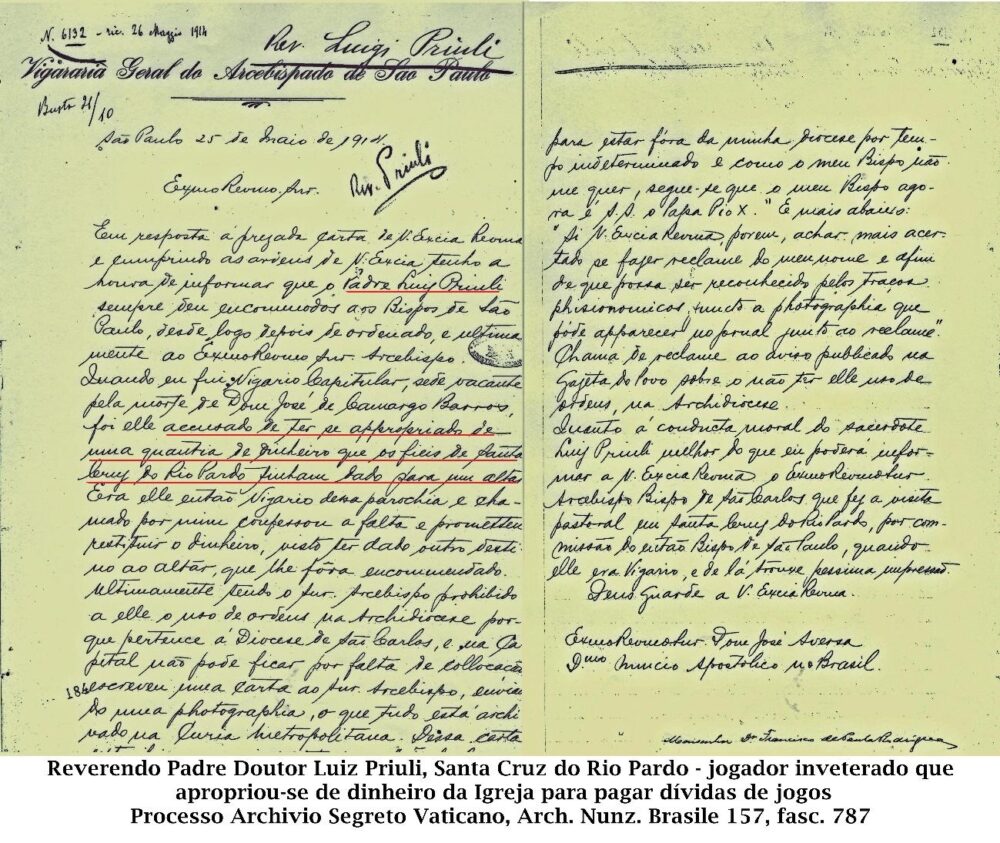 N. 6132 - ric. 26 Maggio 1914
Rev. Luigi Priuli
Vigararia Geral do Arcebispado de São Paulo
Busta 31/10
São Paulo 25 de Maio de 1914
Rev. Priuli
Exmo Revmo Snr.
Em resposta a prezada carta de V. Excia Revma
e cumprindo as ordens de V. Excia tenho a
honra de informar que o Padre Luiz Priuli
sempre deu encommodos aos Bispos de São
Paulo, desde logo depois de ordenado, e ultima
mente ao Exmo Revmo Snr. Arcebispo.
Quando eu fui Vigario Capitular, sede vacante
pela morte de Dom José de Camargo Barros,
foi elle accusado de ter se appropriado de
uma quantia de dinheiro que os fieis de Santa
Cruz do Rio Pardo tinham dado para um altar
Era elle então Vigario dessa parochia e cha-
mado por mim confessou a falta e prometteu
restituir o dinheiro, visto ter dado outro desti
no ao altar, que lhe fôra encommendado.
Ultimamente tendo o Snr. Arcebispo prohibido
a elle o uso de ordens na Archidiocese por-
que pertence á Diocese de São Carlos, e na Ca
pital não pode ficar por falta de collocação
186 escreveu uma carta ao Snr. Arcebispo, envian
do uma photographia, o que tudo está archi
vado na Curia Metropolitana. Dessa carta
para estar fóra da minha diocese por tem-
po indeterminado e como o meu Bispo não
me quer, segue-se que o meu Bispo ago-
ra é S.S. o Papa Pio X." E mais abaixo:
"Si V. Excia Revma, porem, achar mais acer-
tado se fazer reclame do meu nome e afim
de que possa ser reconhecido pelos traços
phisionomicos, junto a photographia que
póde apparecer no jornal junto ao reclame".
Chama de reclame ao aviso publicado na
Gazeta do Povo sobre o não ter elle uso de
ordens, na Archidiocese.
Quanto á conducta moral do sacerdote
Luiz Priuli melhor do que eu poderá infor-
mar a V. Excia Revma o Exmo Revmo Snr
Arcebispo Bispo de São Carlos que fez a visita
pastoral em Santa Cruz do Rio Pardo, por com-
missão do então Bispo de São Paulo, quando
elle era Vigario, e de lá trouxe pessima impressão.
Deus Guarde a V. Excia Revma.
Exmo Revmo Snr. Dom José Aversa
Dmo Nuncio Apostolico no Brasil.
Monsenhor Dr Francisco de Paula Rodrigues
Reverendo Padre Doutor Luiz Priuli, Santa Cruz do Rio Pardo - jogador inveterado que
apropriou-se de dinheiro da Igreja para pagar dívidas de jogos
Processo Archivio Segreto Vaticano, Arch. Nunz. Brasile 157, fasc. 787